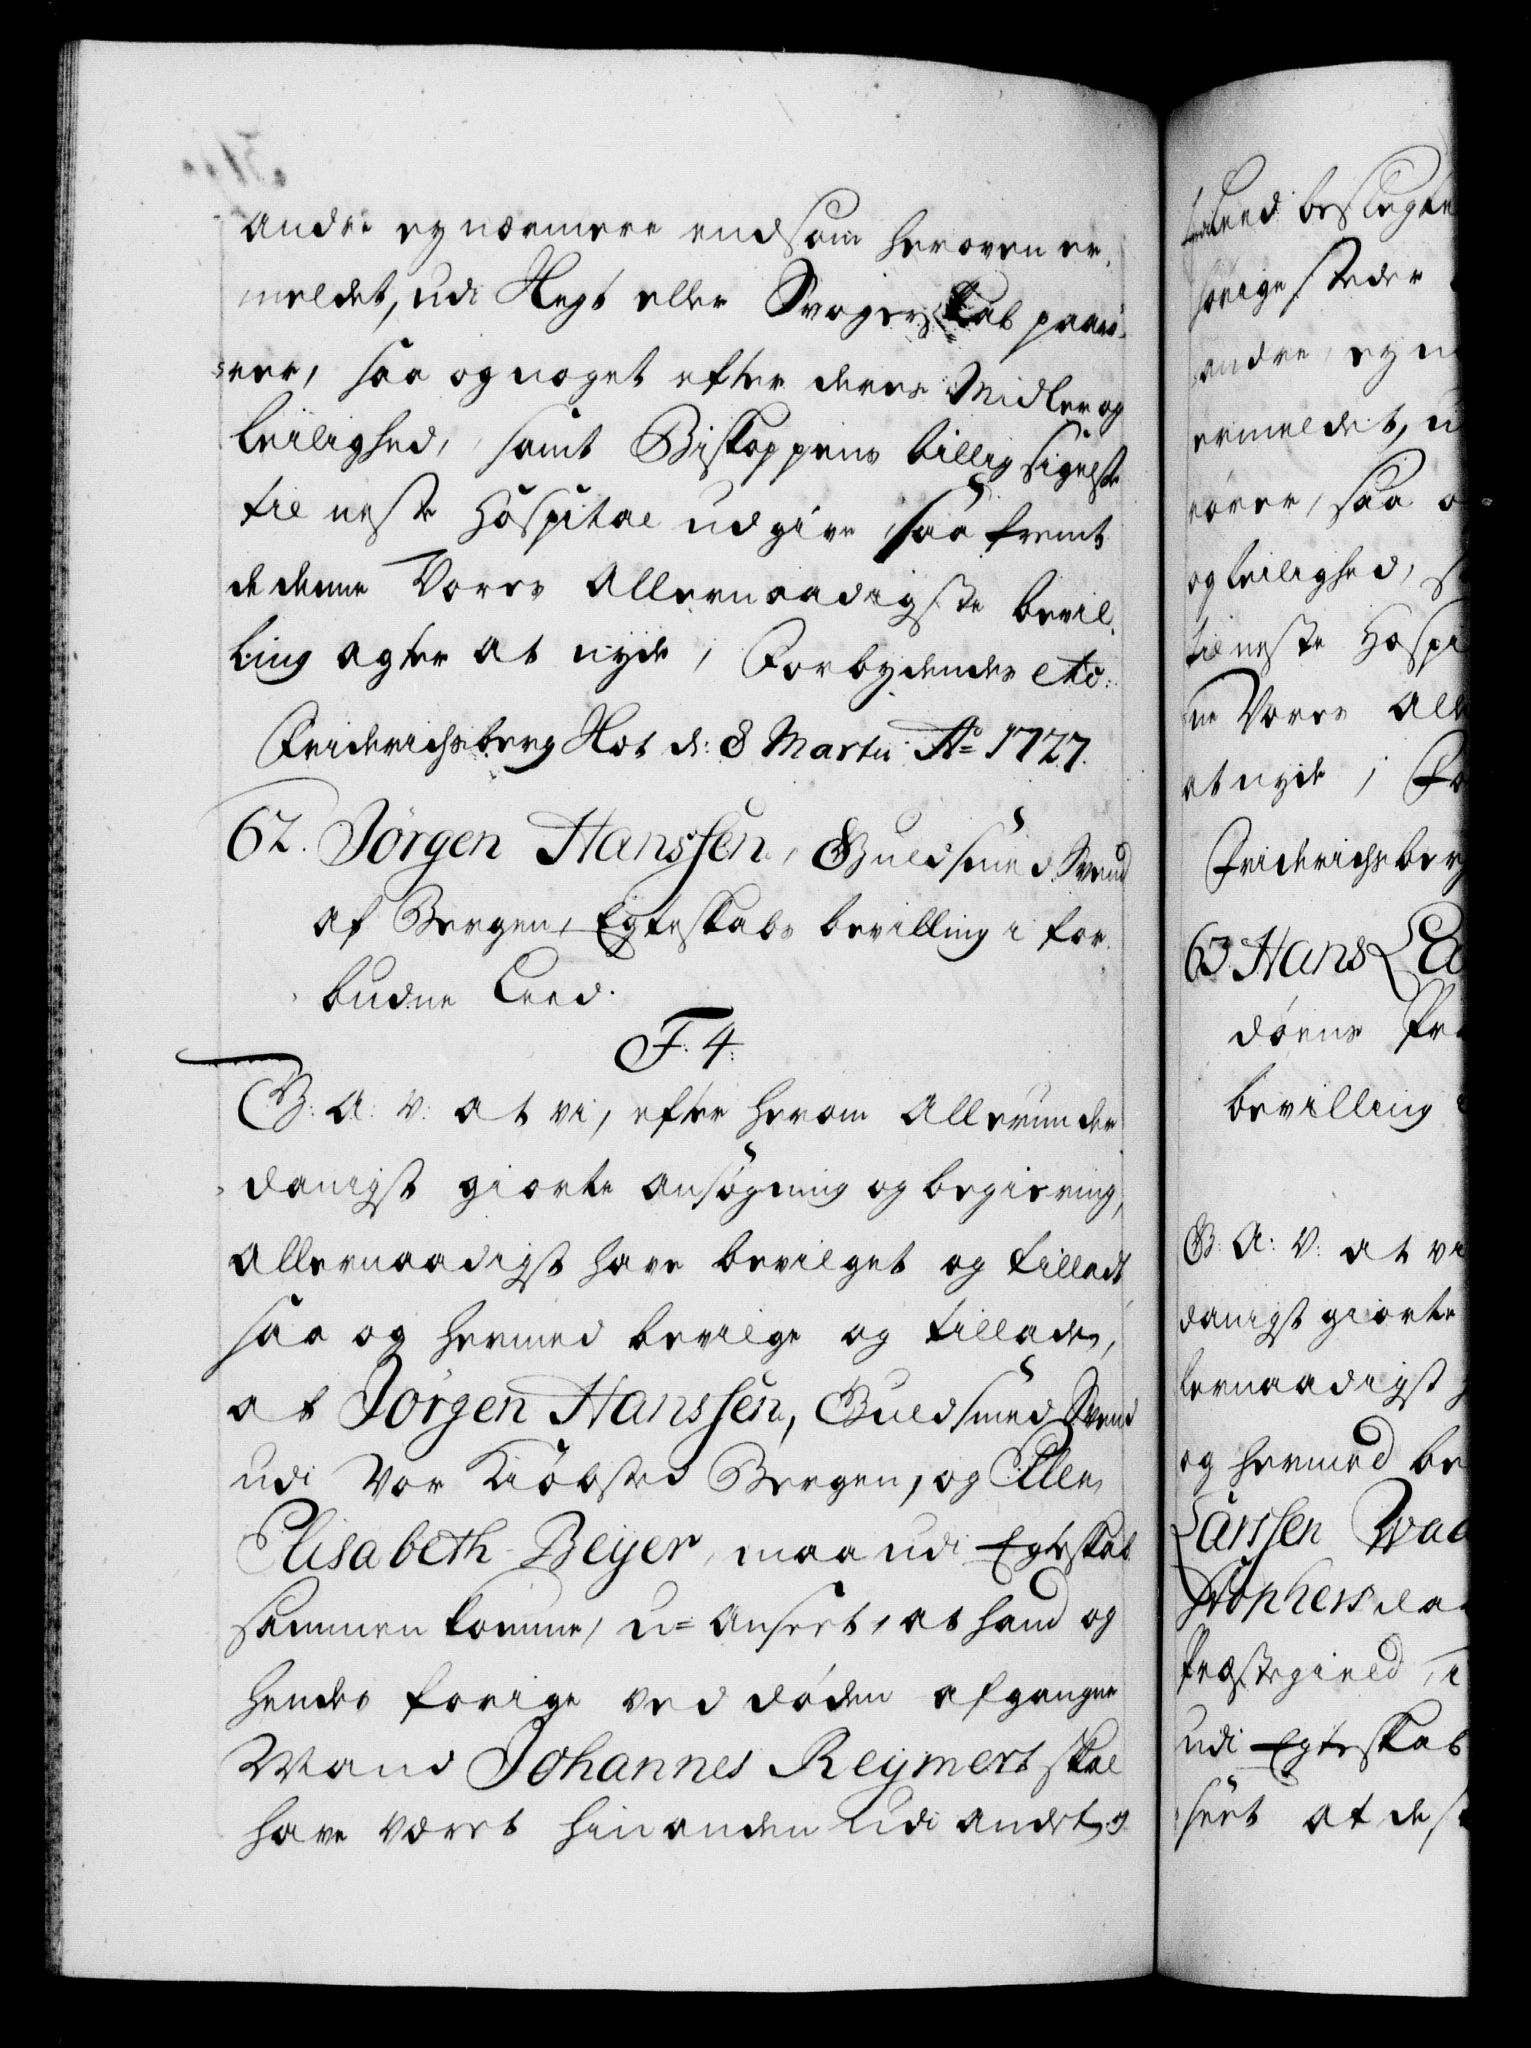 andre ey nærmere end som heroven er-
meldet, udi Slegt eller Svogerskab paarö-
rer, saa og noget efter deres Midler og
leilighed, samt Biskoppens billig sigelse
til neste Hospital udgive, saa fremt
de denne Vores Allernaadigste bevil-
ling agter at nyde, Forbydendes etc:
Friderichsberg Slot d: 8 Martii Ao 1727.
62. Jörgen Hanssen, Guldsmed Svend
af Bergen, Egteskabs bevilling i for-
budne Leed.
F. 4.
G: A: V: at vi, efter herom Allerunder
danigst giorte ansögning og begiering,
Allernaadigst have bevilget og tilladt,
saa og hermed bevilge og tillade,
at Jörgen Hanssen, Guldsmed Svend
udi Vor Kiöbsted Bergen, og Elle
Elisabeth Beyer, maa udi Egteskab
sammen komme, u-anseet, at hand og
hendes forige ved döden afgangne
Mand Johannes Reymert skal
have været hinanden udi andet og
leed beslegte
hörige steder
andre, ey n
ermeldet, u
rörer, saa o
og leilighed, s
til neste Hospi
ne Vores All
at nyde, Fo
Friderichsberg
63. Hans La
döens Pr
bevilling
G: A: V: at vi
danigst giorte
lernaadigst
og hermed be
Larssen Wad
Stophers dat
Præstegield, i
udi Egteskab
seet at de s